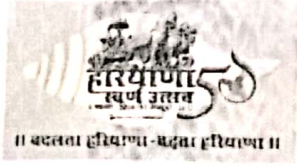 हरियाणा
स्वर्ण उत्सव
॥ बदलता हरियाणा - बढ़ता हरियाणा ॥